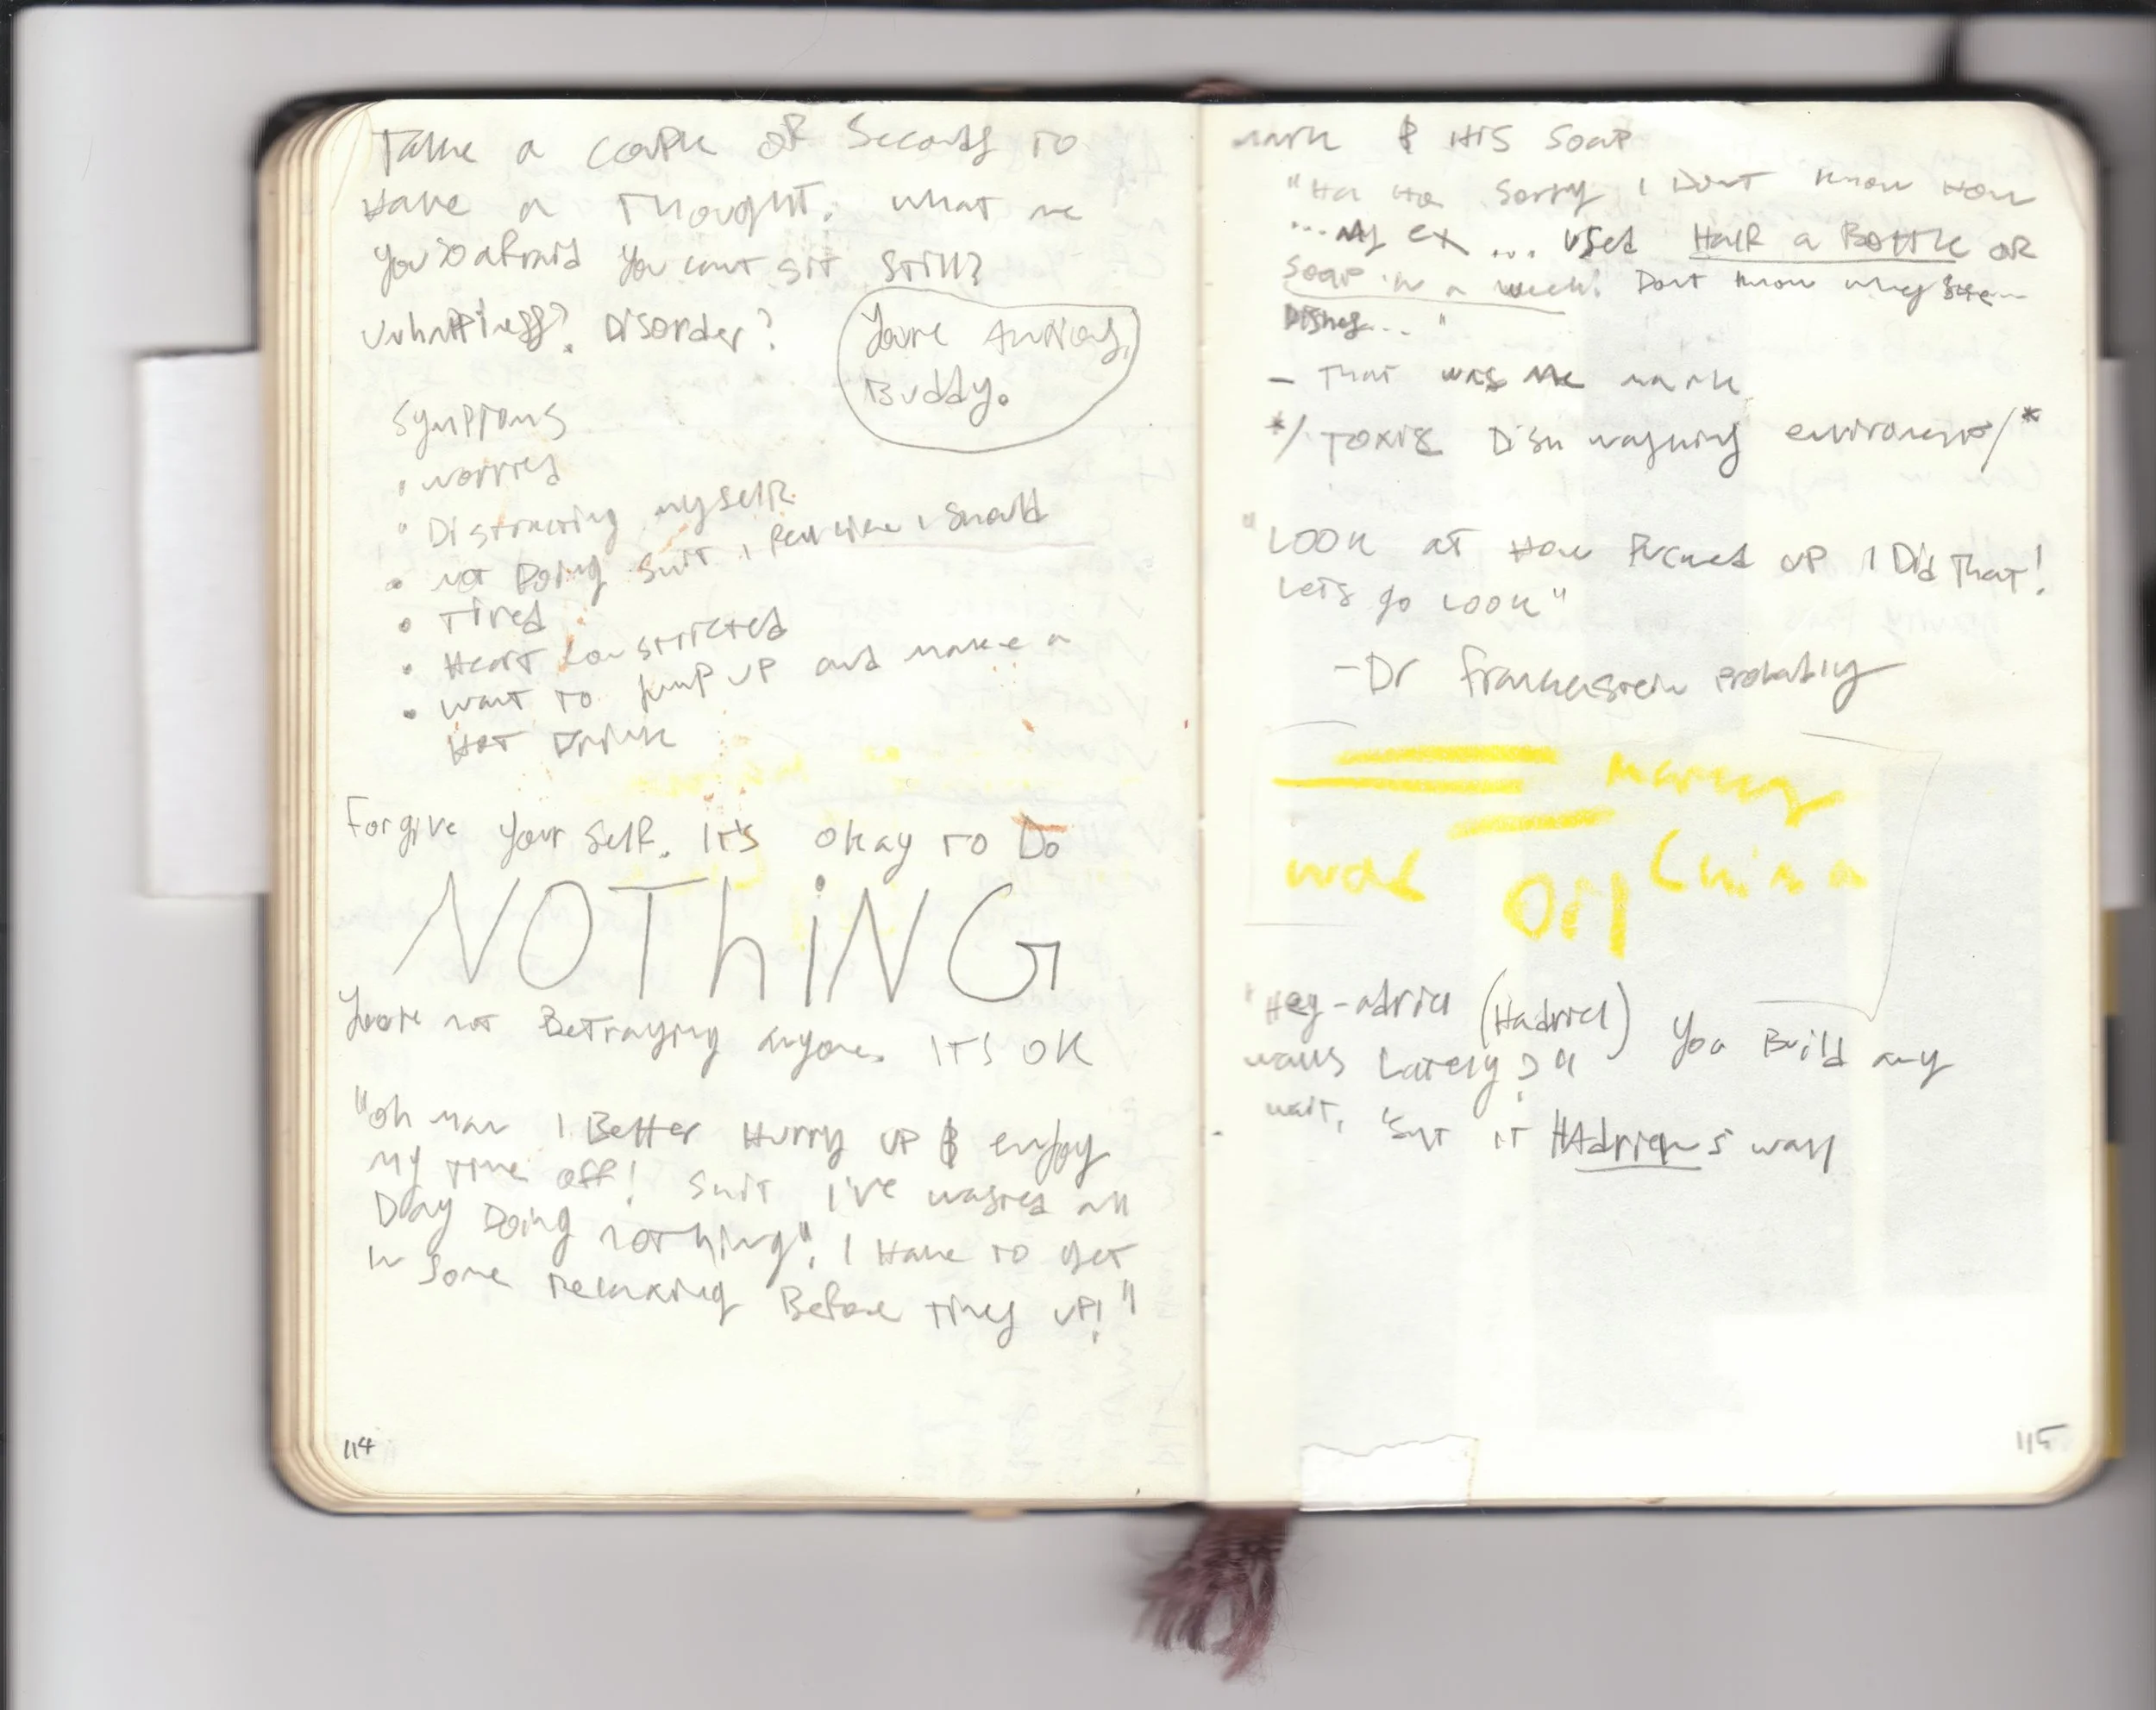 Take a couple of seconds to
have a thought. what are
you so afraid you cant sit still?
unhappiness? Disorder?
You're Anxious,
Buddy.
Symptoms
• worried
• Distracting myself
• not Doing shit i feel like i should
• Tired
• Heart constricted
• want to jump up and make a
Hot Drink
Forgive your self. It's okay to Do
NOThiNG
You're not Betraying anyone. It's OK
"oh man I Better Hurry up & enjoy
my time off! Shit I've wasted all
Day Doing nothing". I Have to get
in some relaxing Before times up!"
114
mark & His Soap
"Ha Ha Sorry I Dont know how
...my ex ... used Half a Bottle of
Soap in a week! Dont know why
Dishes... "
- That was me mark
*/ Toxic Dish washing environment/*
"LOOK at How Fucked up I Did That!
Lets go LOOK"
-Dr Frankenstein probably
was Oil China
"Hey-adriel (Hadriel) you Build any
walls Lately?"
wait, isnt it HAdriens wall
115